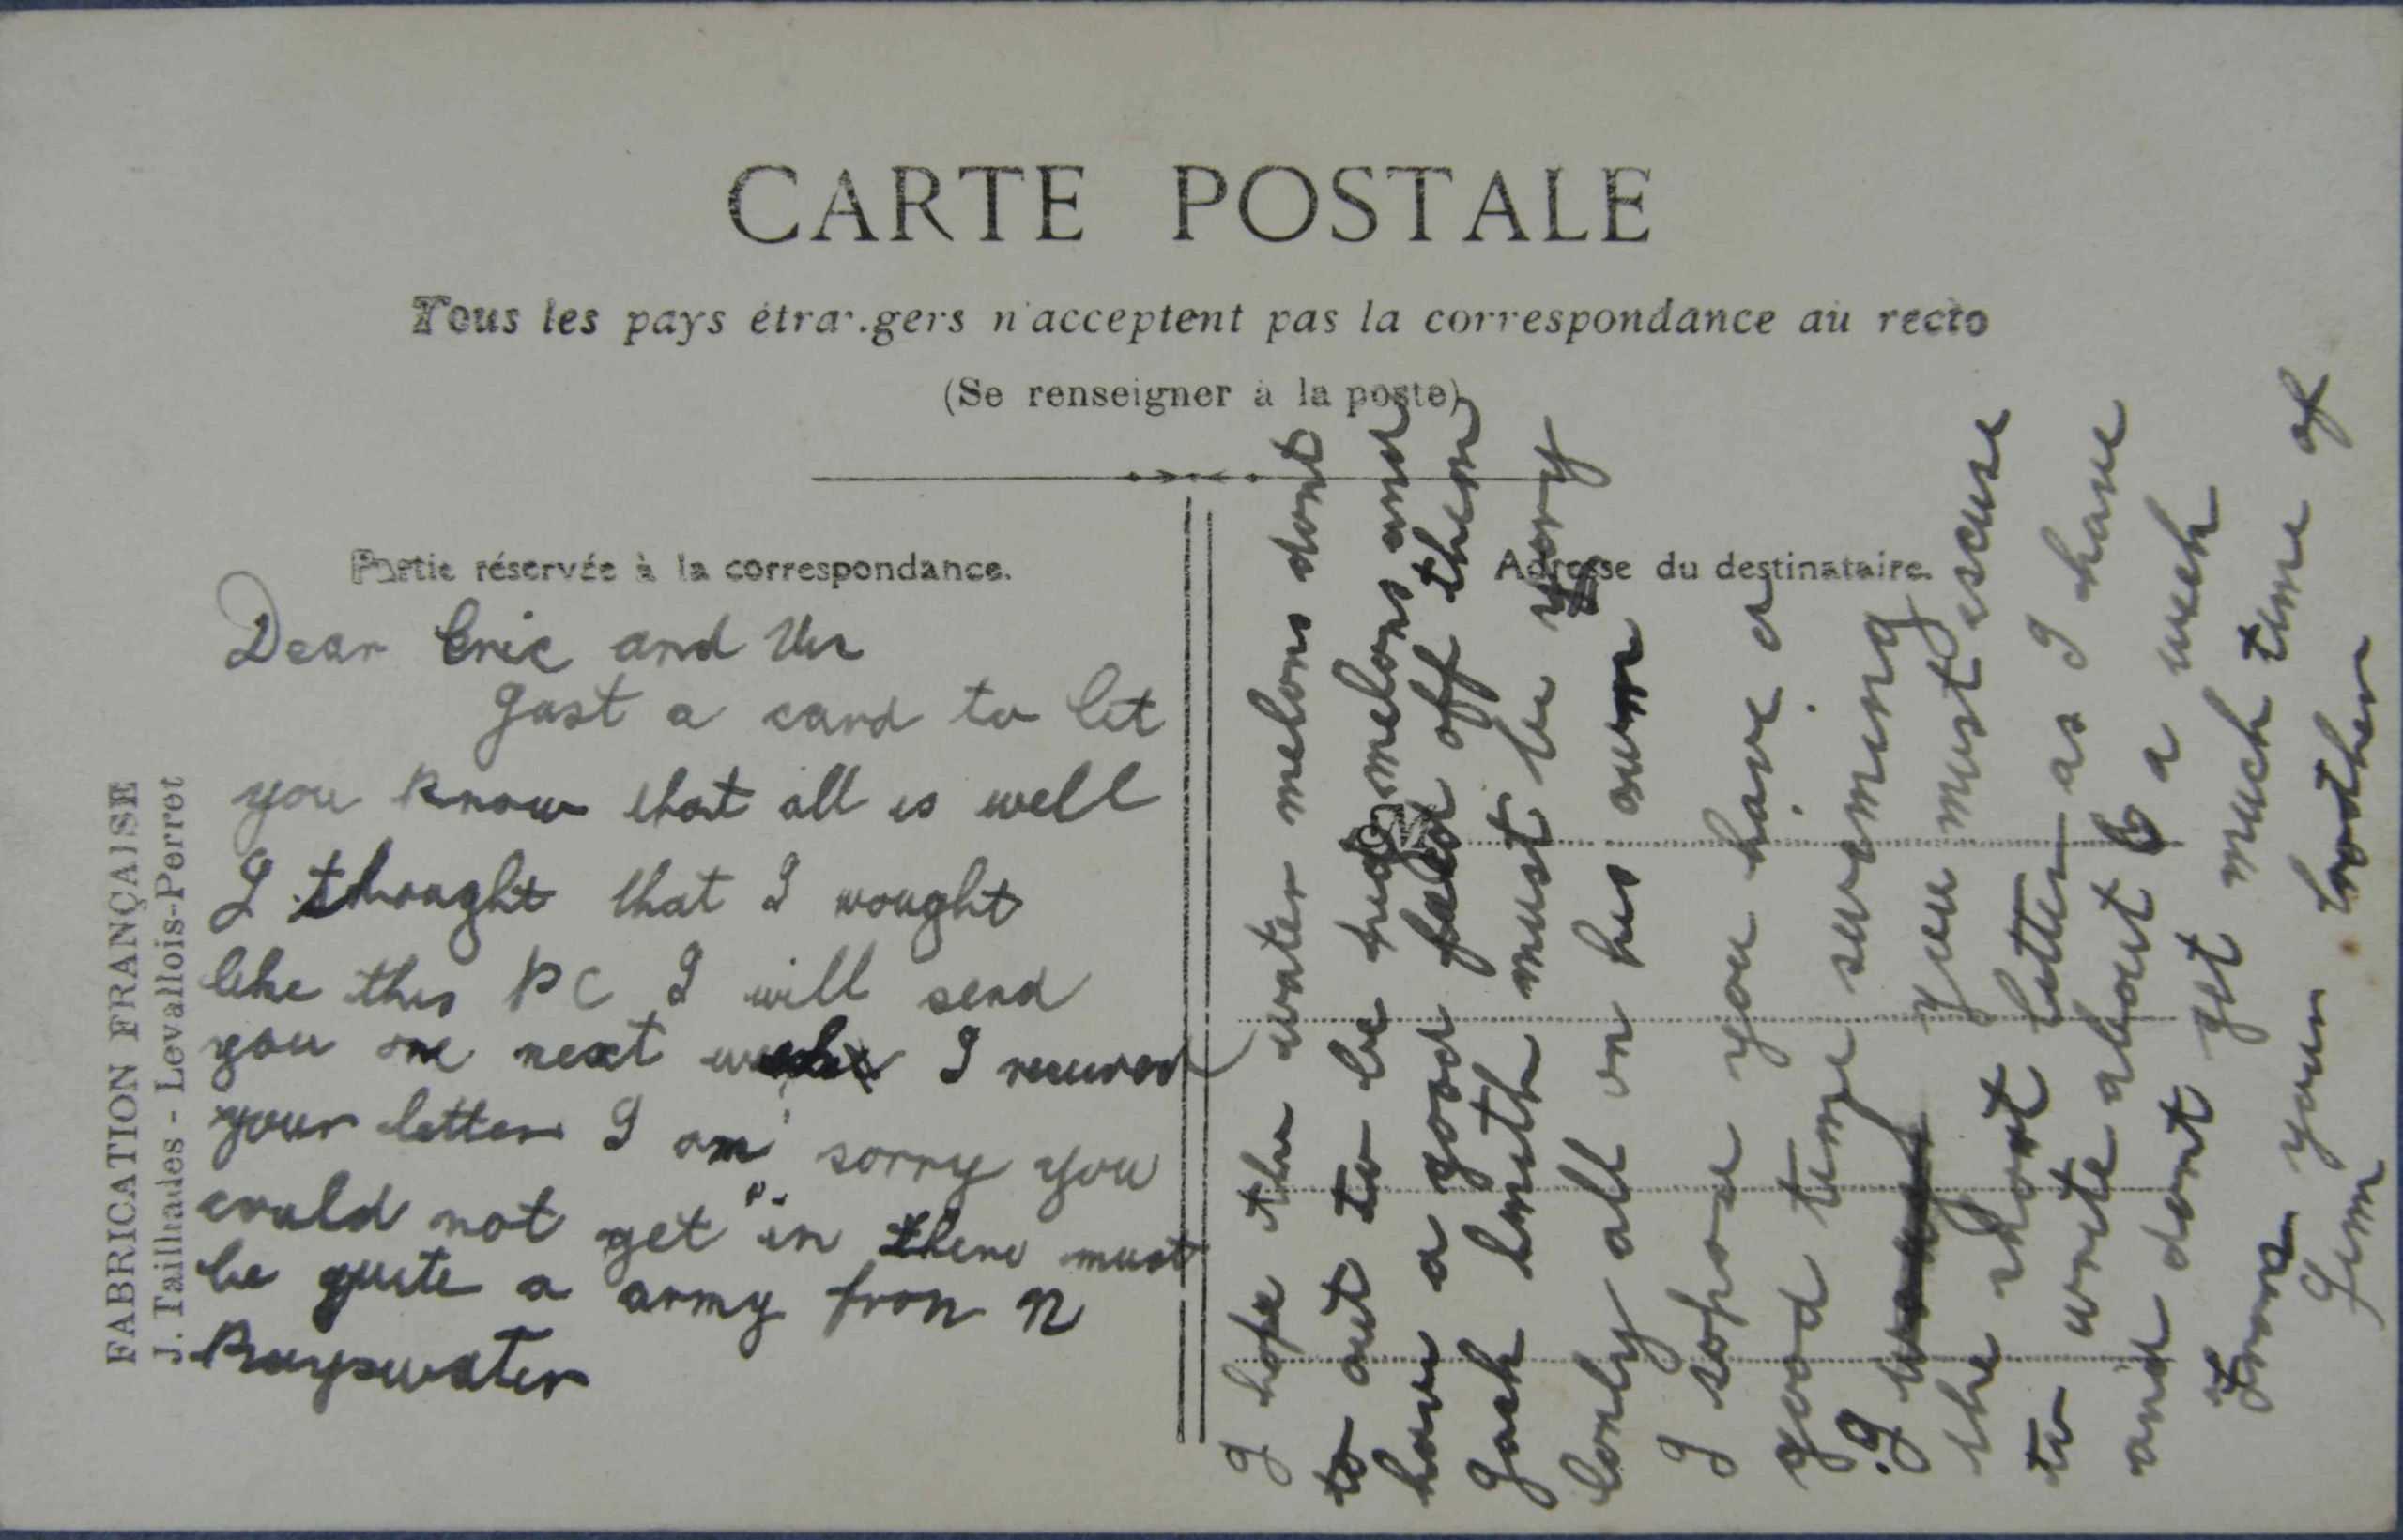 CARTE POSTALE
Tous les pays étrangers n'acceptent pas la correspondance au recto
(Se renseigner à la poste)
Partie réservée à la correspondance.
Adresse du destinataire.
FABRICATION FRANÇAISE
J. Tailhades - Levallois-Perret
Dear Eric and
Just a card to let
you know that all is well
I thought that I wought
like this PC I will send
you one next I recived
your letter I am sorry you
could not get in there must
be quite a army fron N
Bayswater
I hope the water melons dont
to out to be melons and
have a good off them
Jack Smith must be very
lonly all on his own
I sopose you have a
good time surming
I you must escuse
the short letter as I have
to write about 6 a week
and dont get much time of
From your brother
Jim